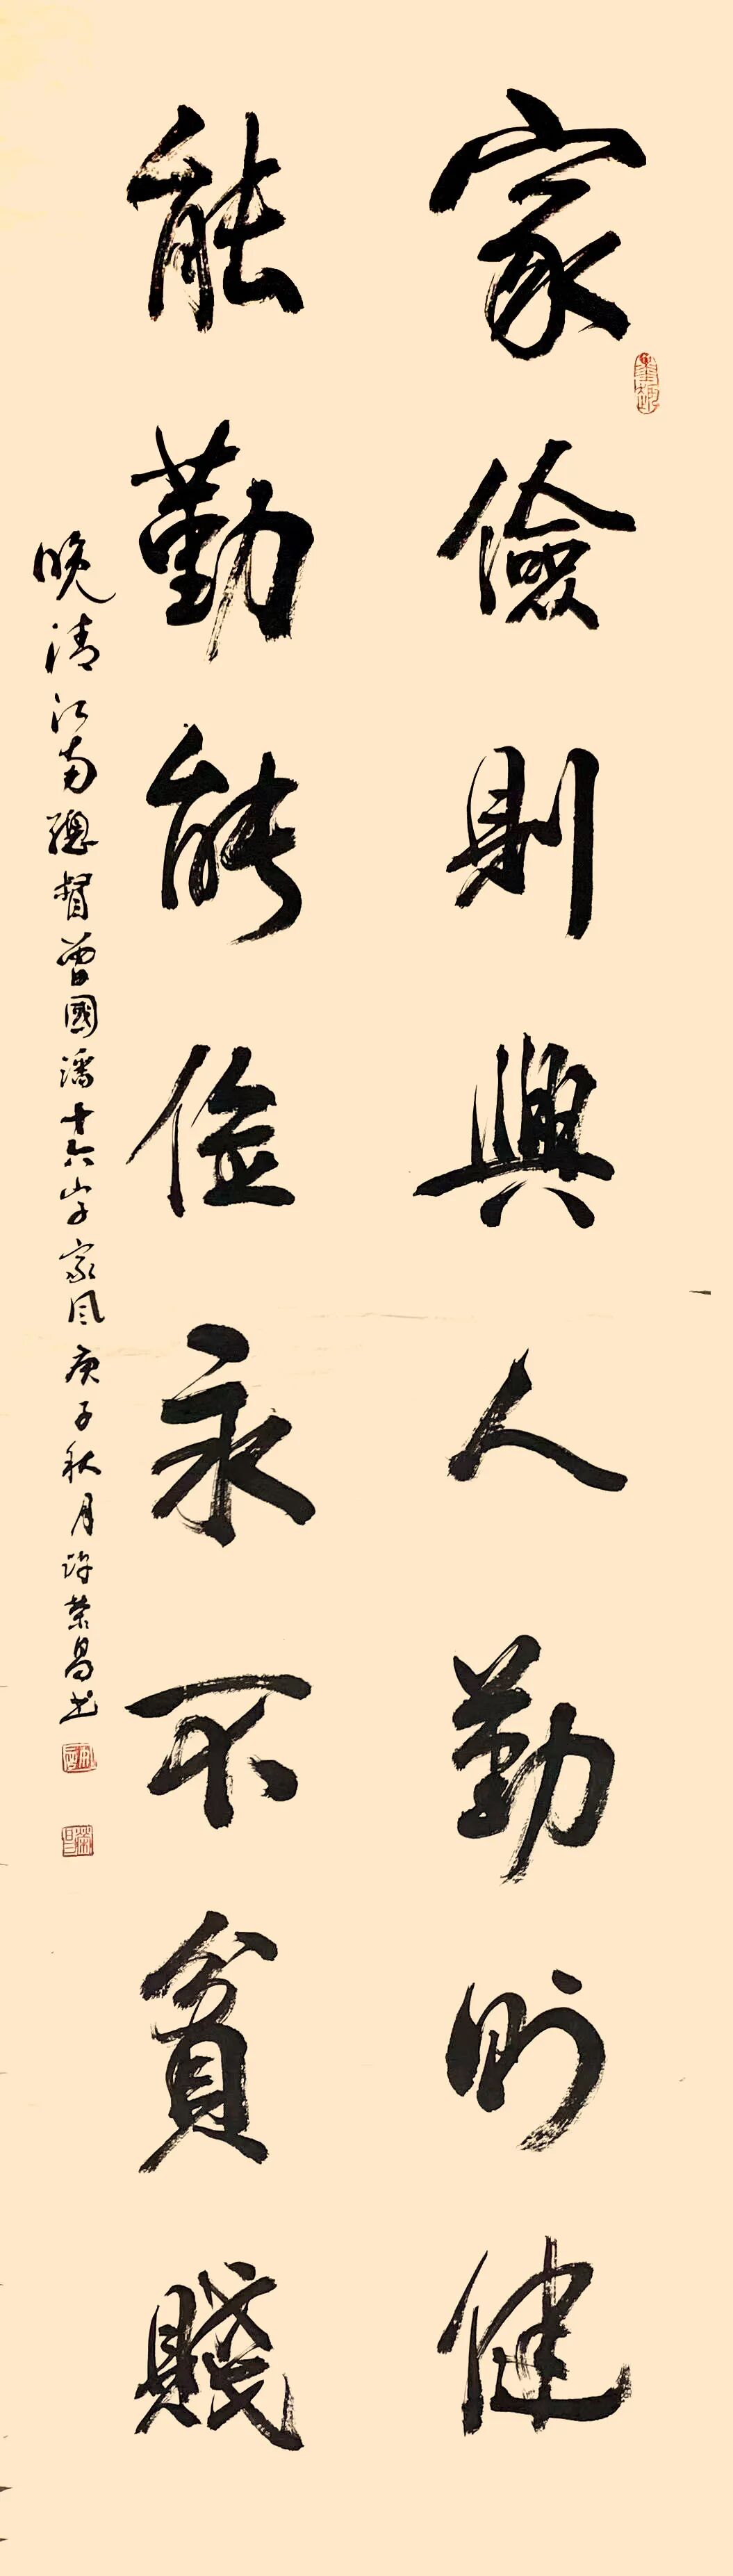 家儉則興人勤則健
能勤能儉永不貧賤
晚清江南總督曾國藩十六字家風庚子秋月許榮昌书